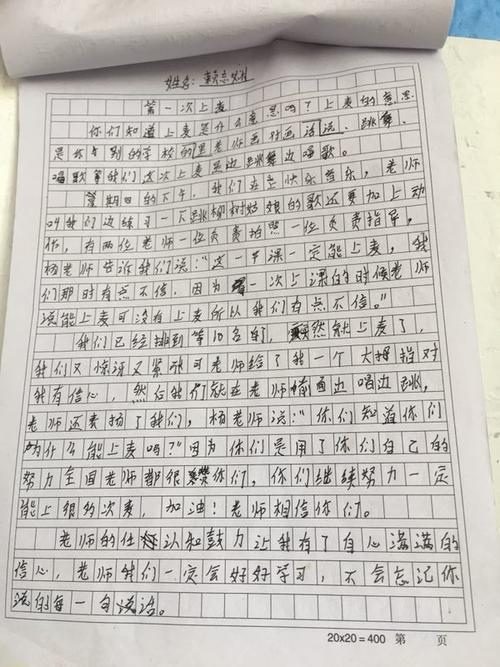 姓名：
第一次上麦
你们知道上麦是什么意思吗？上麦的意思
是给别的学校的老师面对面说话、跳舞、
唱歌等我们这次上麦是边跳舞边唱歌。
星期四的下午，我们在上快乐音乐，老师
叫我们边练习一下跳柳树姑娘的歌还要加上动
作，有两位老师一位负责拍照一位负责指导，
杨老师告诉我们说：“这一节课一定能上麦，我
们那时有点不信，因为第一次上课的时候老师
说能上麦可没有上麦所以我们有点不信。”
我们已经排到第10名了，突然就上麦了，
我们又惊讶又紧张可老师给了我一个大拇指对
我有信心，然后我们就在老师面前边唱边跳，
老师还表扬了我们，杨老师说：“你们知道你们
为什么能上麦吗？”因为你们是用了你们自己的
努力全国老师都很赞你们，你们继续努力一定
能上很多次麦，加油！老师相信你们。
老师的信认和鼓力让我有了自心满满的
信心，老师我们一定会好好学习，不会忘记你
说的每一句说话。
20×20=400 第 页